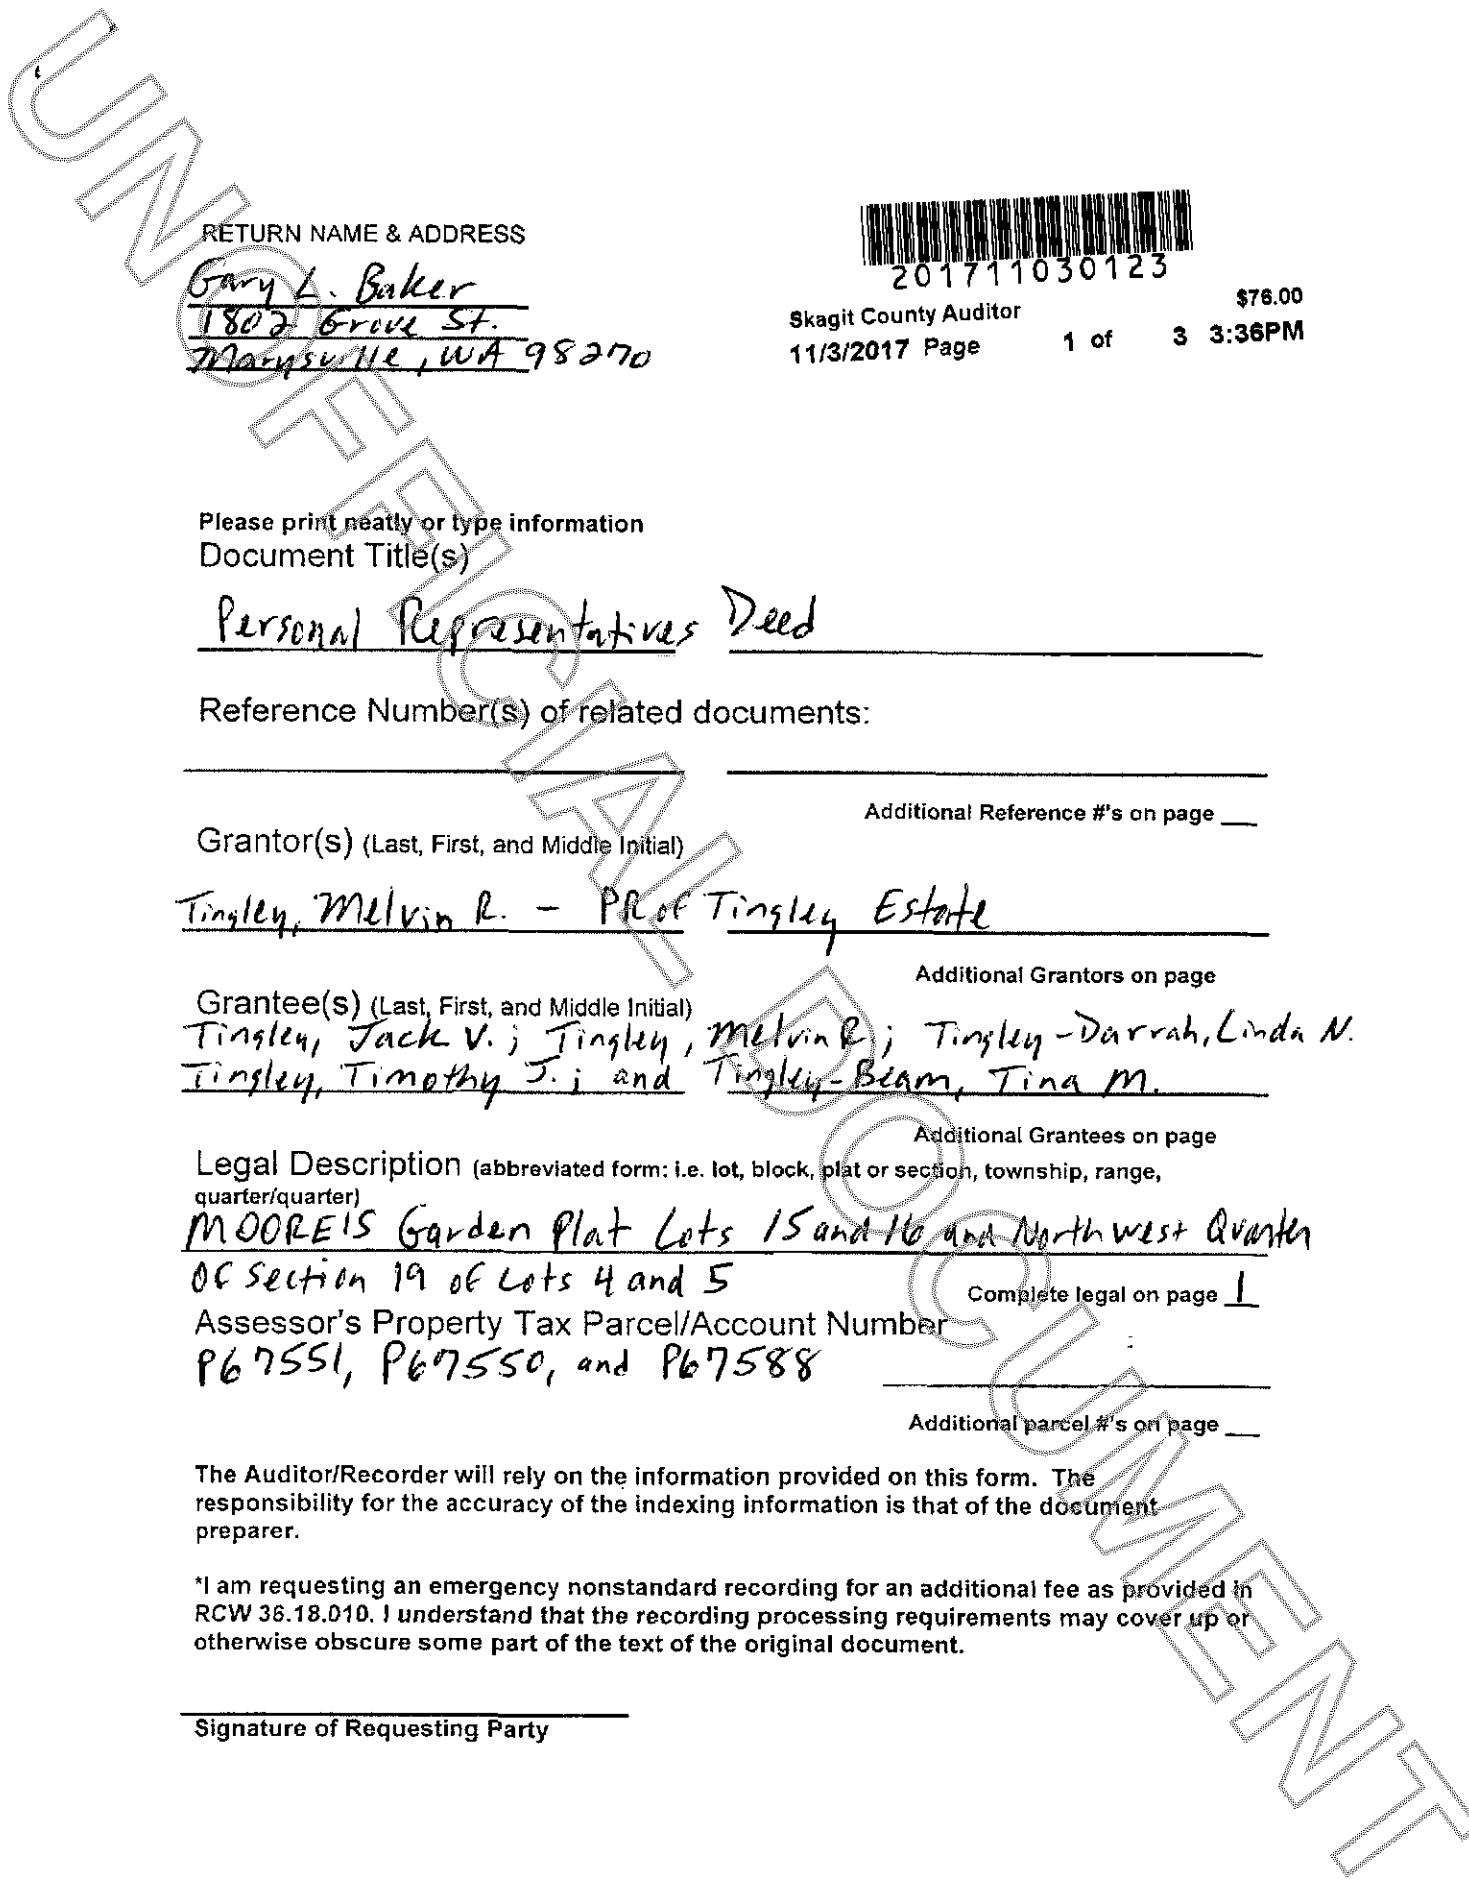 RETURN NAME & ADDRESS
Gary L. Baker
1802 Grove St.
Marysville, WA 98270
201711030123
Skagit County Auditor $76.00
11/3/2017 Page 1 of 3 3:36PM
Please print neatly or type information
Document Title(s)
Personal Representatives Deed
Reference Number(s) of related documents:
Additional Reference #'s on page
Grantor(s) (Last, First, and Middle Initial)
Tingley, Melvin R. - PR of Tingley Estate
Additional Grantors on page
Grantee(s) (Last, First, and Middle Initial)
Tingley, Jack V.; Tingley, Melvin R; Tingley-Darrah, Linda N.
Tingley, Timothy J.; and Tingley-Beam, Tina M.
Additional Grantees on page
Legal Description (abbreviated form: i.e. lot, block, plat or section, township, range,
quarter/quarter)
MOORE'S Garden Plat Lots 15 and 16 and North west Quarter
of Section 19 of Lots 4 and 5
Complete legal on page 1
Assessor's Property Tax Parcel/Account Number
P67551, P67550, and P67588
Additional parcel #'s on page
The Auditor/Recorder will rely on the information provided on this form. The
responsibility for the accuracy of the indexing information is that of the document
preparer.
*I am requesting an emergency nonstandard recording for an additional fee as provided in
RCW 36.18.010. I understand that the recording processing requirements may cover up or
otherwise obscure some part of the text of the original document.
Signature of Requesting Party
UNOFFICIAL DOCUMENT